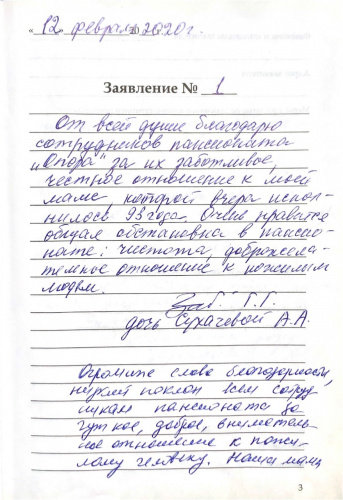 "12" февраль 2020г.
Заявление № 1
От всей души благодарю
сотрудников пансионата
"Опора" за их заботливое,
честное отношение к моей
маме, которой вчера испол-
нилось 93 года. Очень нравится
общая обстановка в пансио-
нате: чистота, доброжела-
тельное отношение к пожилым
людям.
Г.Г.
дочь Сухачевой А.А.
Огромные слова благодарности,
низкий поклон всем сотруд
никам пансионата за
чуткое, доброе, вниматель-
ное отношение к пожи-
лому человеку. Наша мама
3